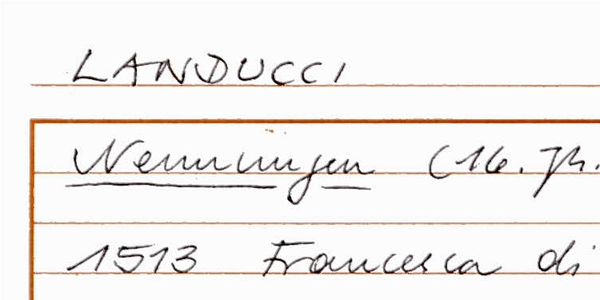 LANDUCCI
Nennungen (16. Jh.
1513 Francesca di